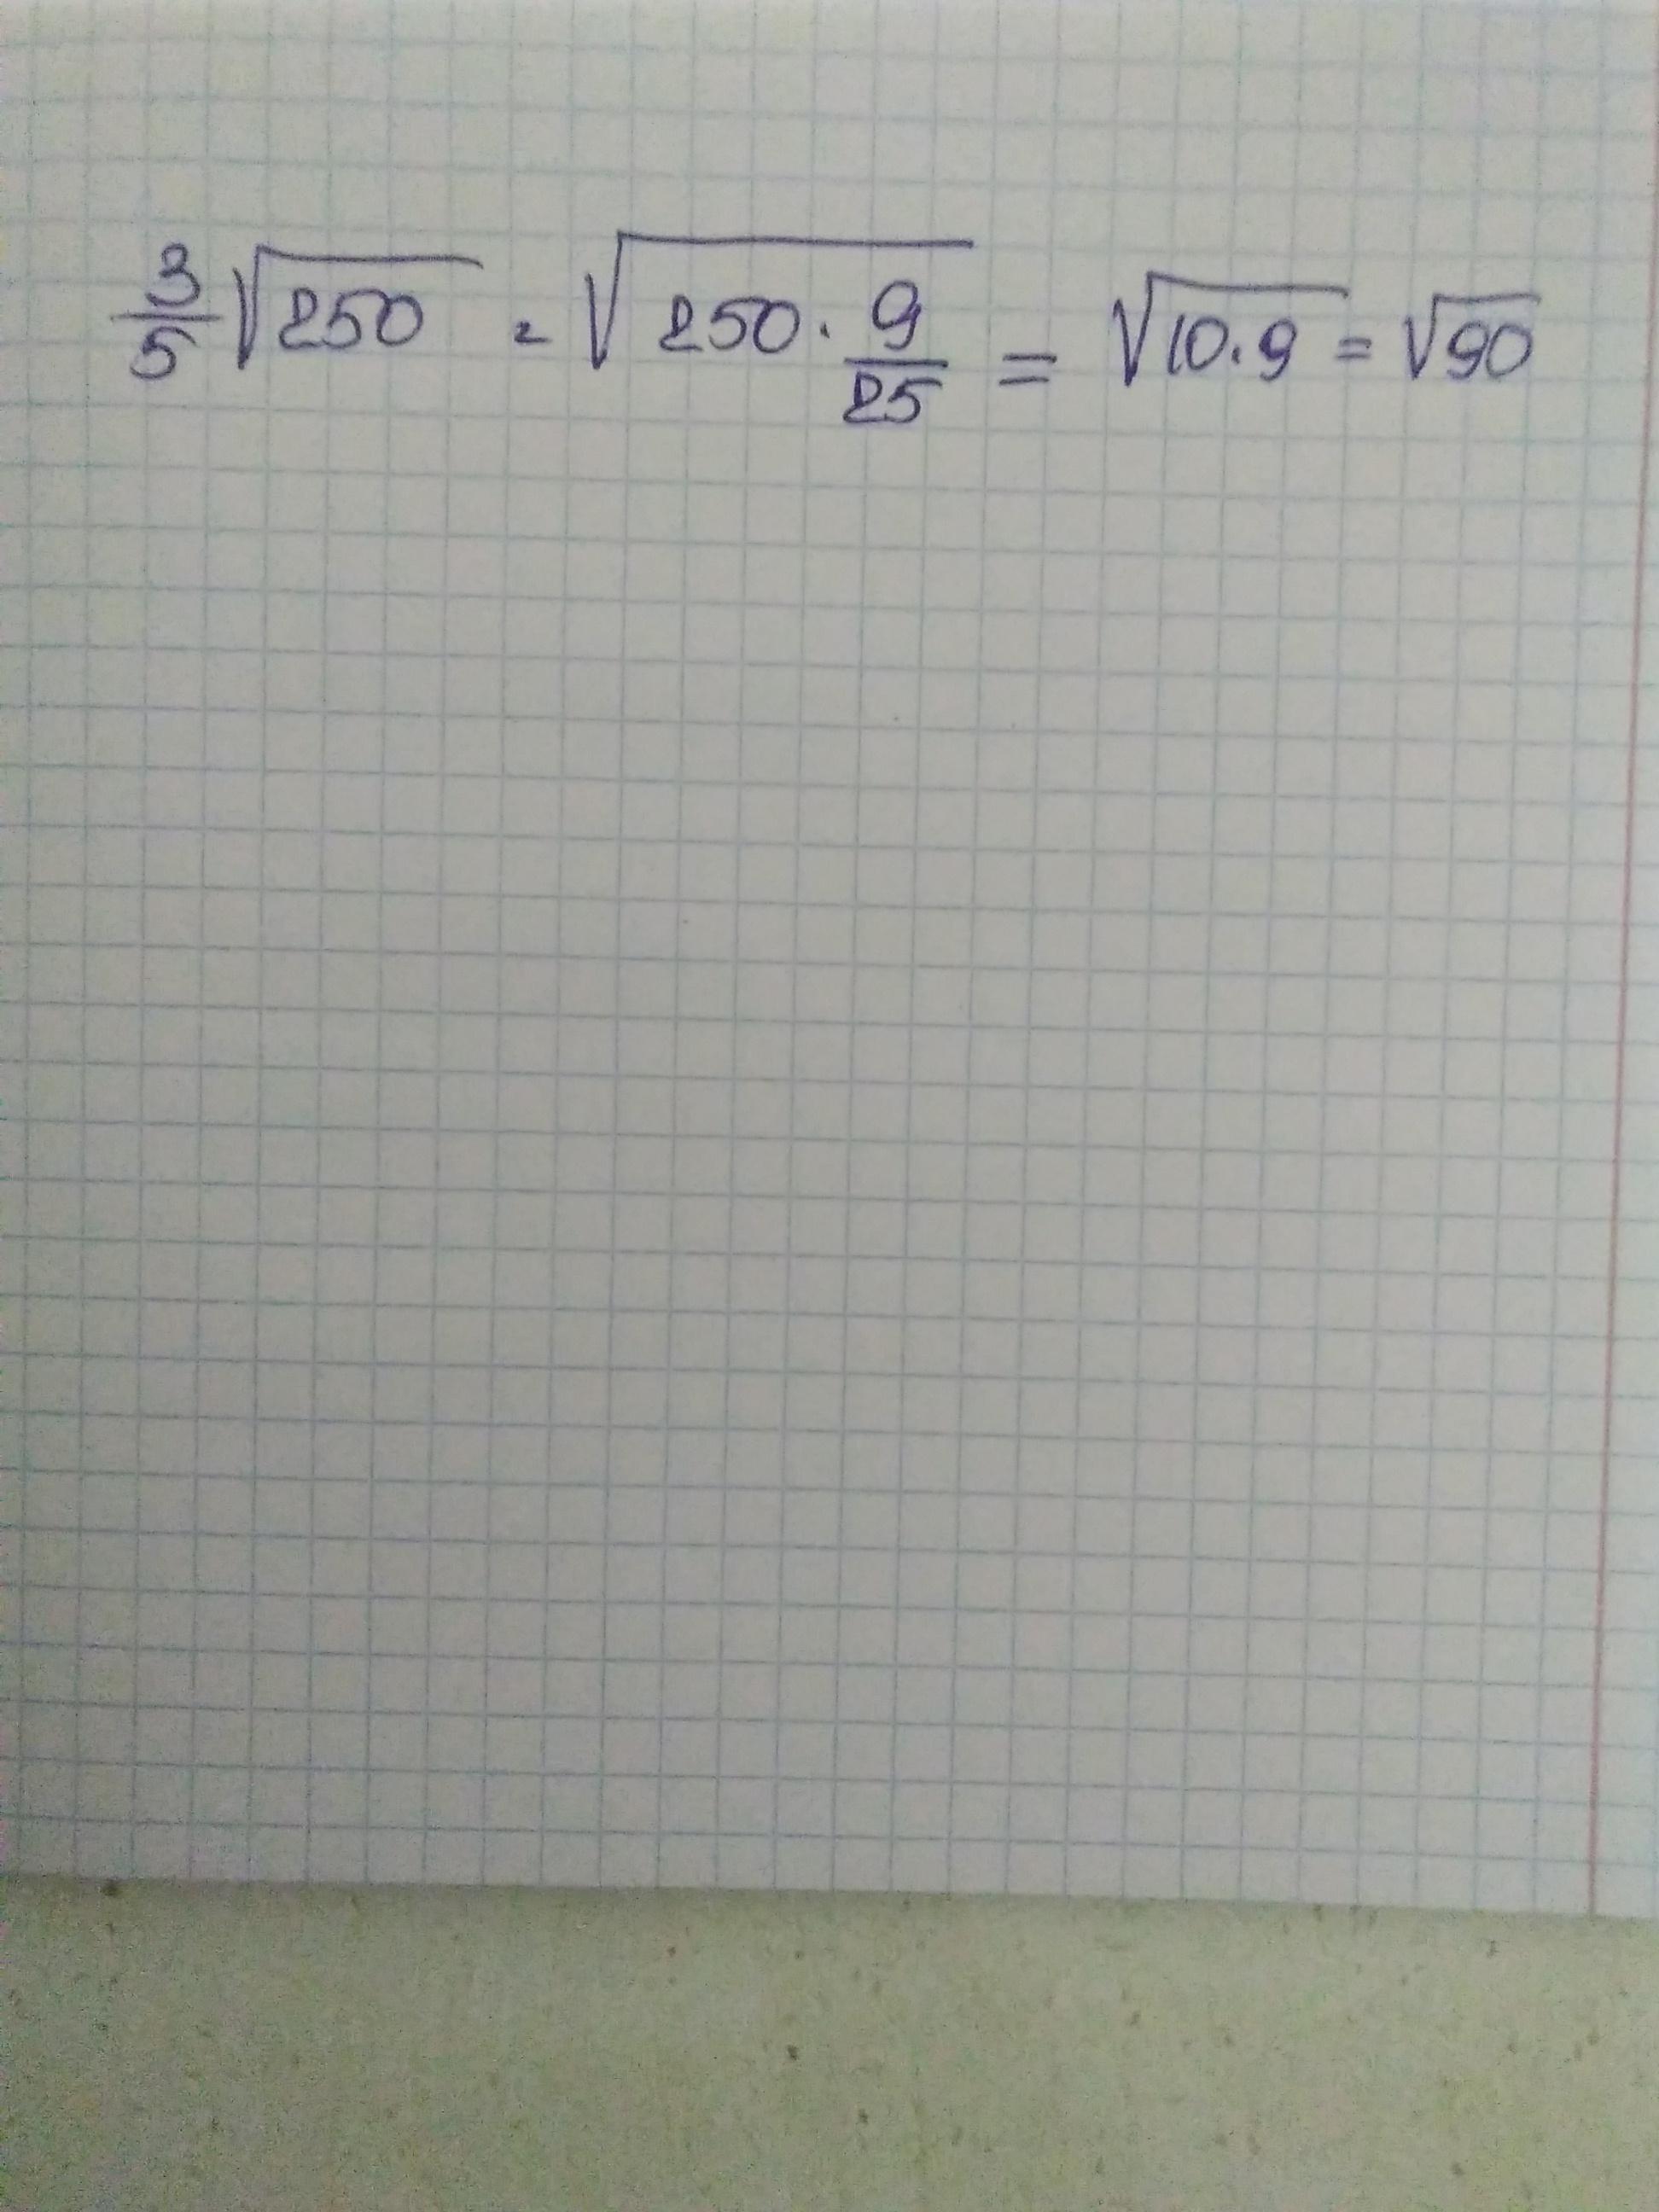 3/5 √250 = √(250 · 9/25) = √(10 · 9) = √90